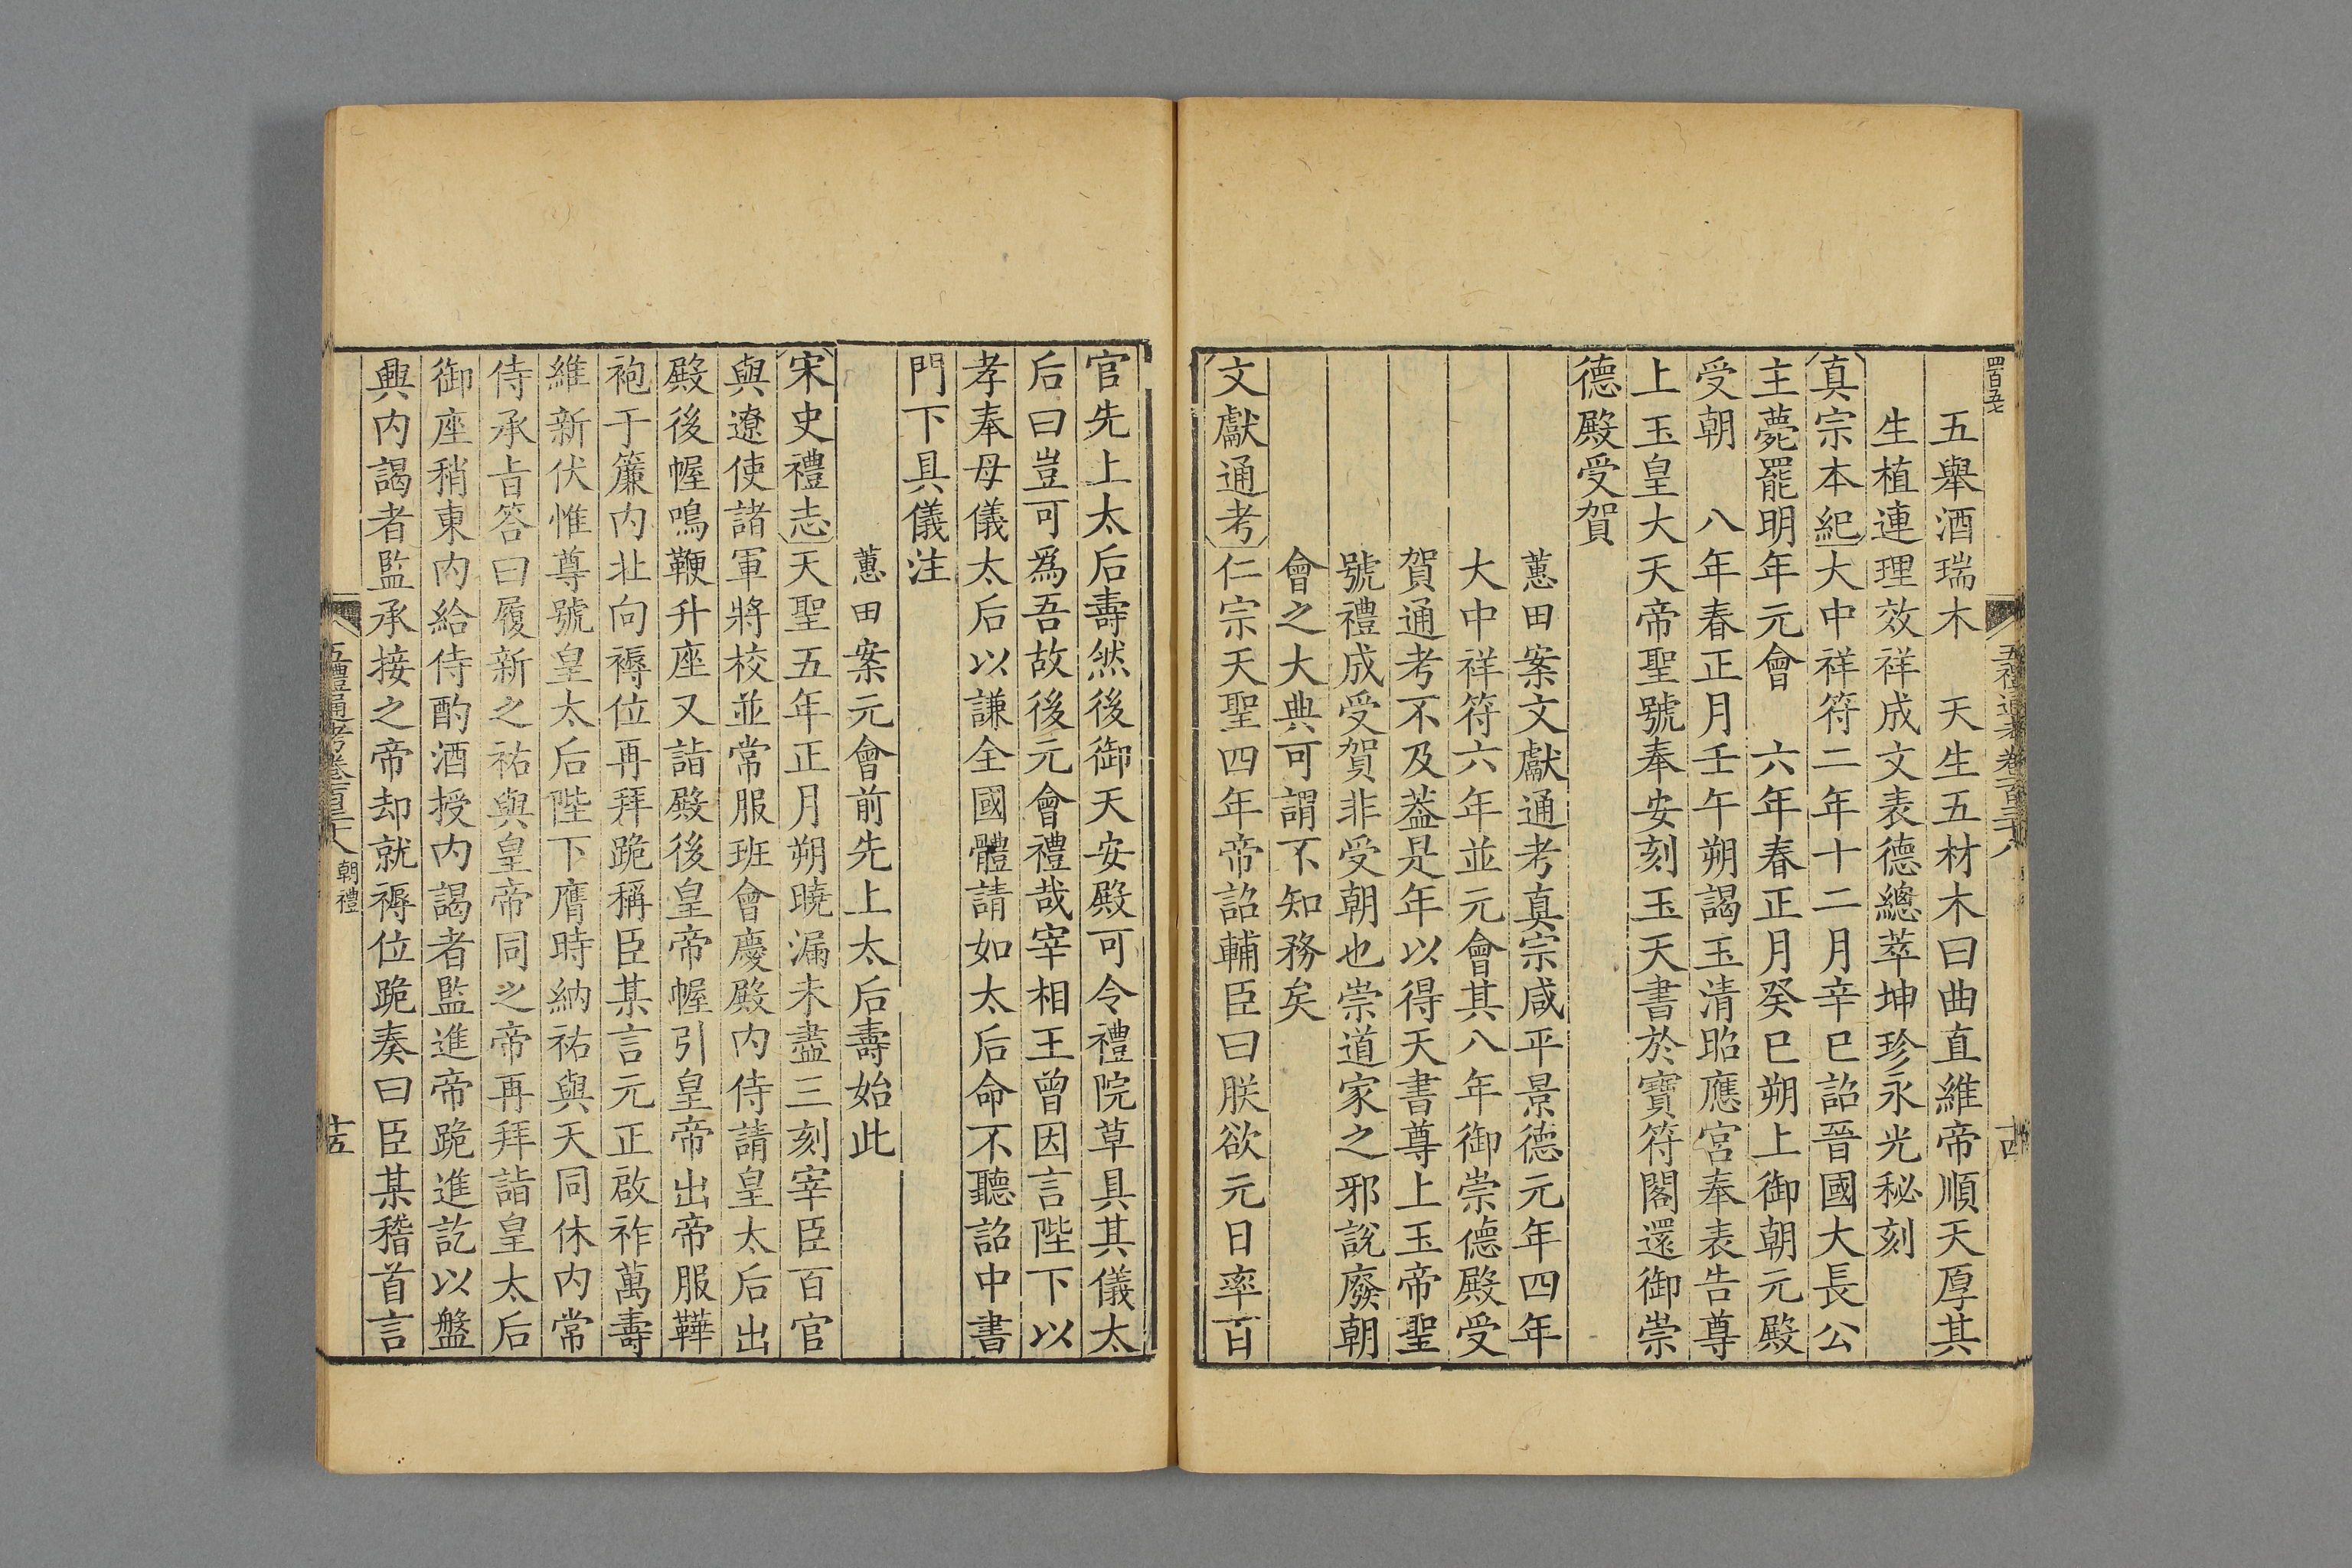 四百五七
五舉酒瑞木　天生五材木曰曲直維帝順天厚其
生植連理效祥成文表德總萃坤珍永光秘刻
真宗本紀大中祥符二年十二月辛巳詔晉國大長公
主薨罷明年元會　六年春正月癸巳朔上御朝元殿
受朝　八年春正月壬午朔謁玉清昭應宮奉表告尊
上玉皇大天帝聖號奉安刻玉天書於寶符閣還御崇
德殿受賀
蕙田案文獻通考真宗咸平景德元年四年
大中祥符六年並元會其八年御崇德殿受
賀通考不及葢是年以得天書尊上玉帝聖
號禮成受賀非受朝也崇道家之邪說廢朝
會之大典可謂不知務矣
文獻通考仁宗天聖四年帝詔輔臣曰朕欲元日率百
官先上太后壽然後御天安殿可令禮院草具其儀太
后曰豈可爲吾故後元會禮哉宰相王曾因言陛下以
孝奉母儀太后以謙全國體請如太后命不聽詔中書
門下具儀注
蕙田案元會前先上太后壽始此
宋史禮志天聖五年正月朔曉漏未盡三刻宰臣百官
與遼使諸軍將校並常服班會慶殿內侍請皇太后出
殿後幄鳴鞭升座又詣殿後皇帝幄引皇帝出帝服鞾
袍于簾內北向褥位再拜跪稱臣某言元正啟祚萬壽
維新伏惟尊號皇太后陛下膺時納祐與天同休內常
侍承旨答曰履新之祐與皇帝同之帝再拜詣皇太后
御座稍東內給侍酌酒授內謁者監進帝跪進訖以盤
興內謁者監承接之帝却就褥位跪奏曰臣某稽首言
五禮通考卷一百三十八　朝禮　十五